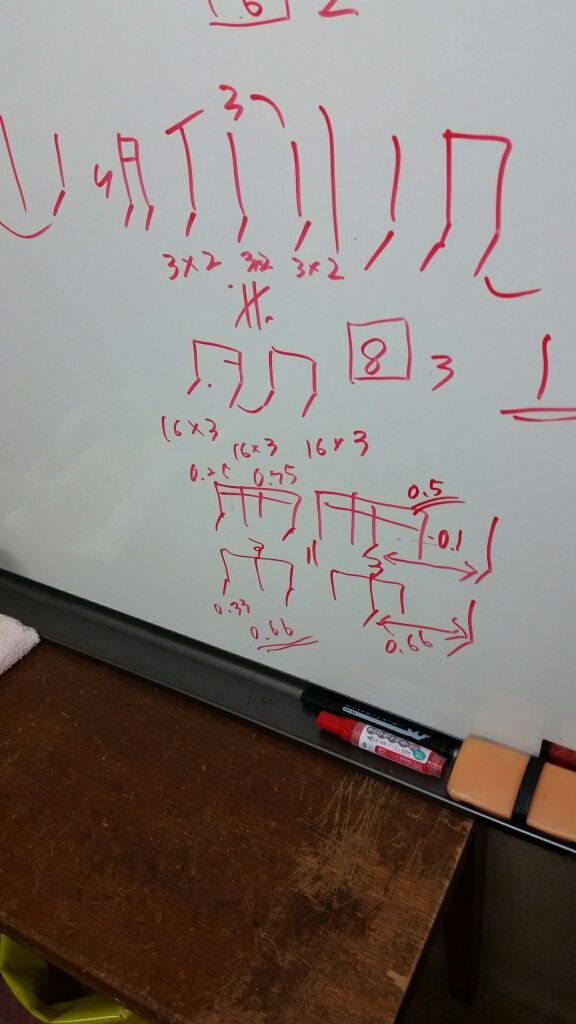 6 2
3
4
3×2 3×2 3×2
8 3 1
16×3 16×3 16×3
0.25 0.75 0.5
-0.1
3 3
0.33 0.66 0.66